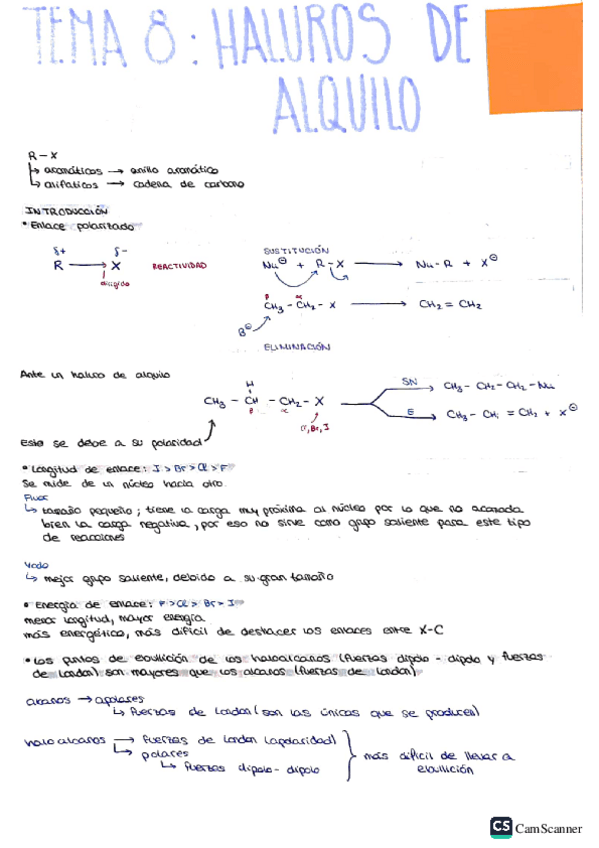 TEMA 8: HALUROS DE
ALQUILO
R-X
↳ aromáticos → anillo aromático
↳ alifáticos → cadena de carbono
INTRODUCCIÓN
• Enlace polarizado
δ+ δ-
R → X REACTIVIDAD
SUSTITUCIÓN
Nu⊖ + R-X → Nu-R + X⊖
β α
CH3 - CH2 - X → CH2 = CH2
B⊖
ELIMINACIÓN
Ante un haluro de alquilo
H
CH3 - CH - CH2 - X
β α
Cl, Br, I
SN CH3 - CH2 - CH2 - Nu
E CH3 - CH = CH2 + X⊖
esto se debe a su polaridad
• Longitud de enlace: I > Br > Cl > F
Se mide de un núcleo hacia otro.
Fluor
↳ tamaño pequeño; tiene la carga muy próxima al núcleo por lo que no acomoda
bien la carga negativa, por eso no sirve como grupo saliente para este tipo
de reacciones
Yodo
↳ mejor grupo saliente, debido a su gran tamaño
• Energía de enlace: F > Cl > Br > I
menor longitud, mayor energía
más energético, más difícil de deshacer los enlaces entre X-C
• Los puntos de ebullición de los haloalcanos (fuerzas dipolo - dipolo y fuerzas
de London) son mayores que los alcanos (fuerzas de London)
alcanos → apolares
↳ fuerzas de London (son las únicas que se producen)
haloalcanos → fuerzas de London (apolaridad)
↳ polares
↳ fuerzas dipolo - dipolo
más difícil de llevar a
ebullición
CS CamScanner